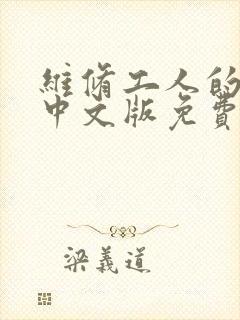 維脩工人的
中文版免費
梁義道